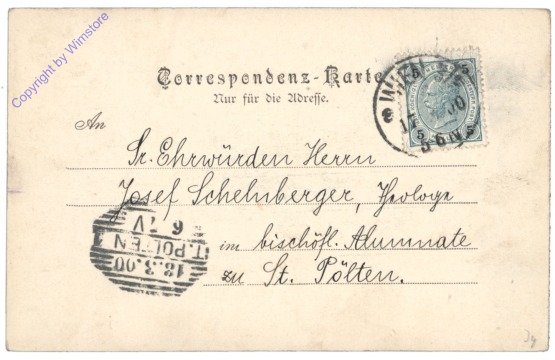 Copyright by Wimstore
Correspondenz-Karte
Nur für die Adresse.
WIEN
5 5
5 6 N
An
Sr. Ehrwürden Herrn
Josef Schelnberger, Theologe
im bischöfl. Alumnate
zu St. Pölten.
ST. PÖLTEN
18.3.00
6 V